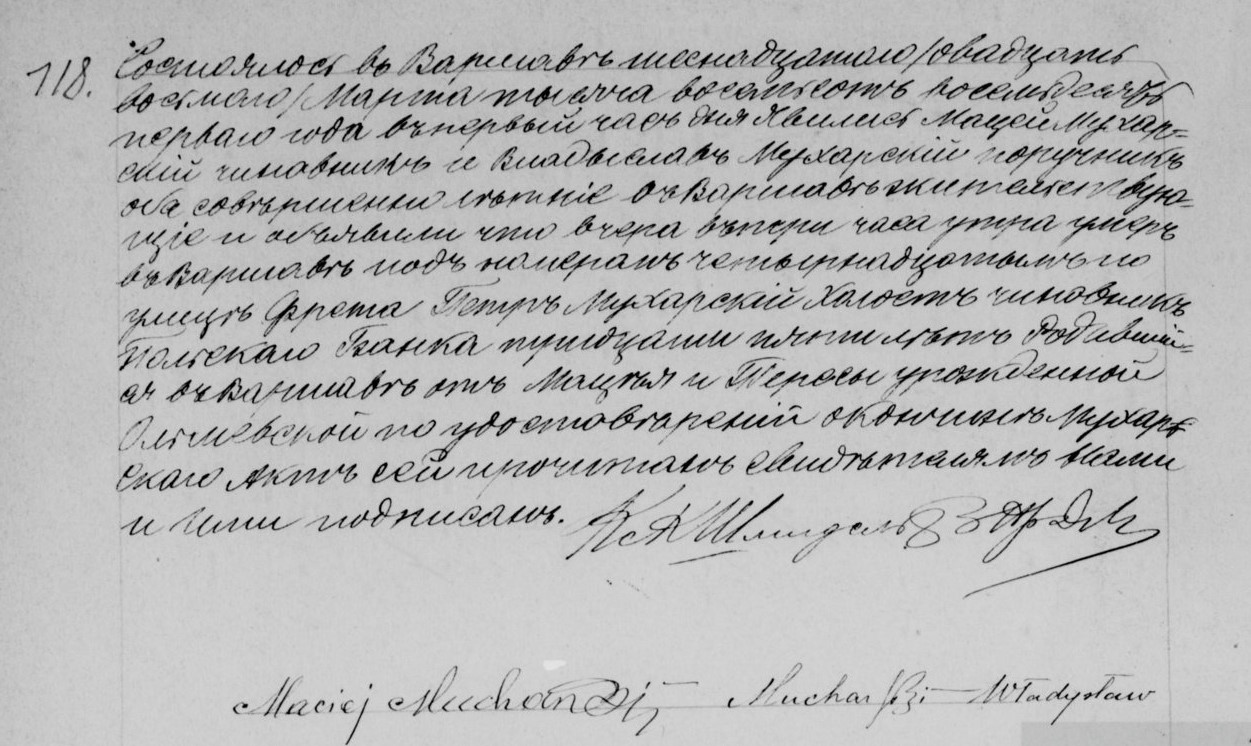 718.
Состоялось въ Варшавѣ шеснадцатаго /двадцать
восьмаго/ Марта тысяча восемьсотъ восемьдесятъ
перваго года въ первый часъ дня. Явились Мацей Мухар=
скій чиновникъ и Владыславъ Мухарскій поручникъ
оба совѣршеннолѣтніе въ Варшавѣ жительствую=
щіе и объявили что вчера въ три часа утра умеръ
въ Варшавѣ подъ номерамъ четырнадцатымъ по
улицѣ Фрета Петръ Мухарскій Халостъ чиновникъ
Польскаго Банка тридцати пяти лѣтъ Родивший=
ся въ Варшавѣ отъ Мацѣя и Тересы урожденной
по удоствѣреній о кончинѣ Мухар=
скаго Актъ сей прочитанъ свидѣтелямъ Нами
и Ими подписанъ.
Maciej Mucharski Mucharski Władysław